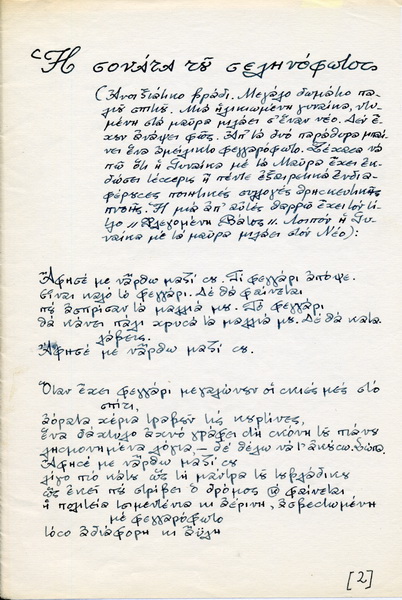 Ἡ σονάτα τοῦ σεληνόφωτος
(Ἀνοιξιάτικο βράδι. Μεγάλο δωμάτιο πα-
λιοῦ σπιτιοῦ. Μιά ἡλικιωμένη γυναίκα, ντυ-
μένη στά μαῦρα μιλάει σ' ἕναν νέο. Δέν ἔ-
χουν ἀνάψει φῶς. Ἀπ' τά δυό παράθυρα μπαί-
νει ἕνα ἀμείλικτο φεγγαρόφωτο. Ξέχασα νά
πῶ ὅτι ἡ Γυναίκα μέ τά Μαῦρα ἔχει ἐκ-
δώσει τέσσερις ἤ πέντε ἐξαιρετικά ἐνδια-
φέρουσες ποιητικές συλλογές θρησκευτικῆς
πνοῆς. Ἡ μιά ἀπ' αὐτές θαρρῶ ἔχει τόν τί-
τλο "Φλεγομένη Βάτος". Λοιπόν ἡ Γυ-
ναίκα μέ τά μαῦρα μιλάει στόν Νέο):
Ἄφησέ με νἄρθω μαζί σου. Τί φεγγάρι ἀπόψε.
εἶναι καλό τό φεγγάρι. Δέ θά φαίνεται
πού ἀσπρίσαν τά μαλλιά μου. Τό φεγγάρι
θά κάνει πάλι χρυσά τά μαλλιά μου. Δέ θά κατα-
λάβεις.
Ἄφησέ με νἄρθω μαζί σου.
Ὅταν ἔχει φεγγάρι μεγαλώνουν οἱ σκιές μές στό
σπίτι,
ἀόρατα χέρια τραβοῦν τίς κουρτίνες,
ἕνα δάχτυλο ἀχνό γράφει στή σκόνη τοῦ πιάνου
λησμονημένα λόγια — δέ θέλω νά τ' ἀκούσω. Σώπα.
Ἄφησέ με νἄρθω μαζί σου
λίγο πιό κάτω ὥς τή μάντρα τοῦ τουβλάδικου
ὥς ἐκεῖ πού στρίβει ὁ δρόμος φαίνεται
ἡ πολιτεία τσιμεντένια κι ἀέρινη, ἀσβεστωμένη
μέ φεγγαρόφωτο
τόσο ἀδιάφορη κι ἄϋλη
[2]